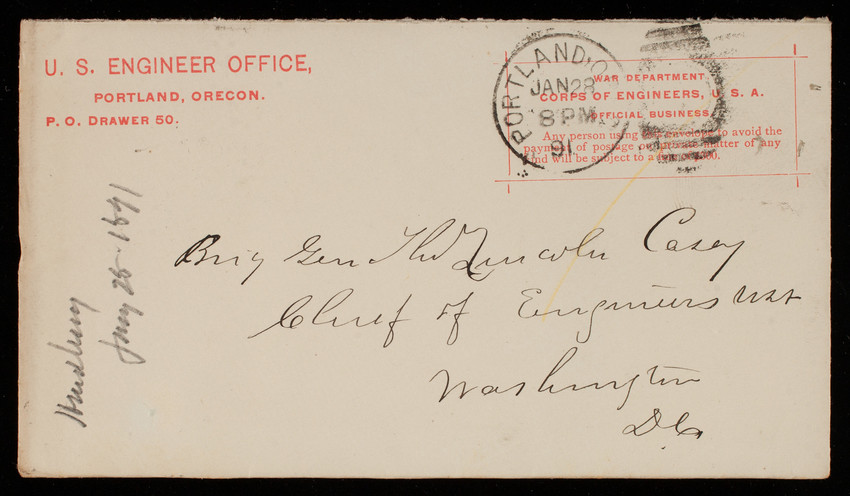 U. S. ENGINEER OFFICE,
PORTLAND, OREGON.
P. O. DRAWER 50.
PORTLAND, O
JAN 28
8 PM
91
WAR DEPARTMENT,
CORPS OF ENGINEERS, U. S. A.
OFFICIAL BUSINESS.
Any person using this envelope to avoid the
payment of postage on private matter of any
kind will be subject to a fine of $300.
Brig Gen Tho Lincoln Casey
Chief of Engineers USA
Washington
DC
Handbury
Jany 28 1891